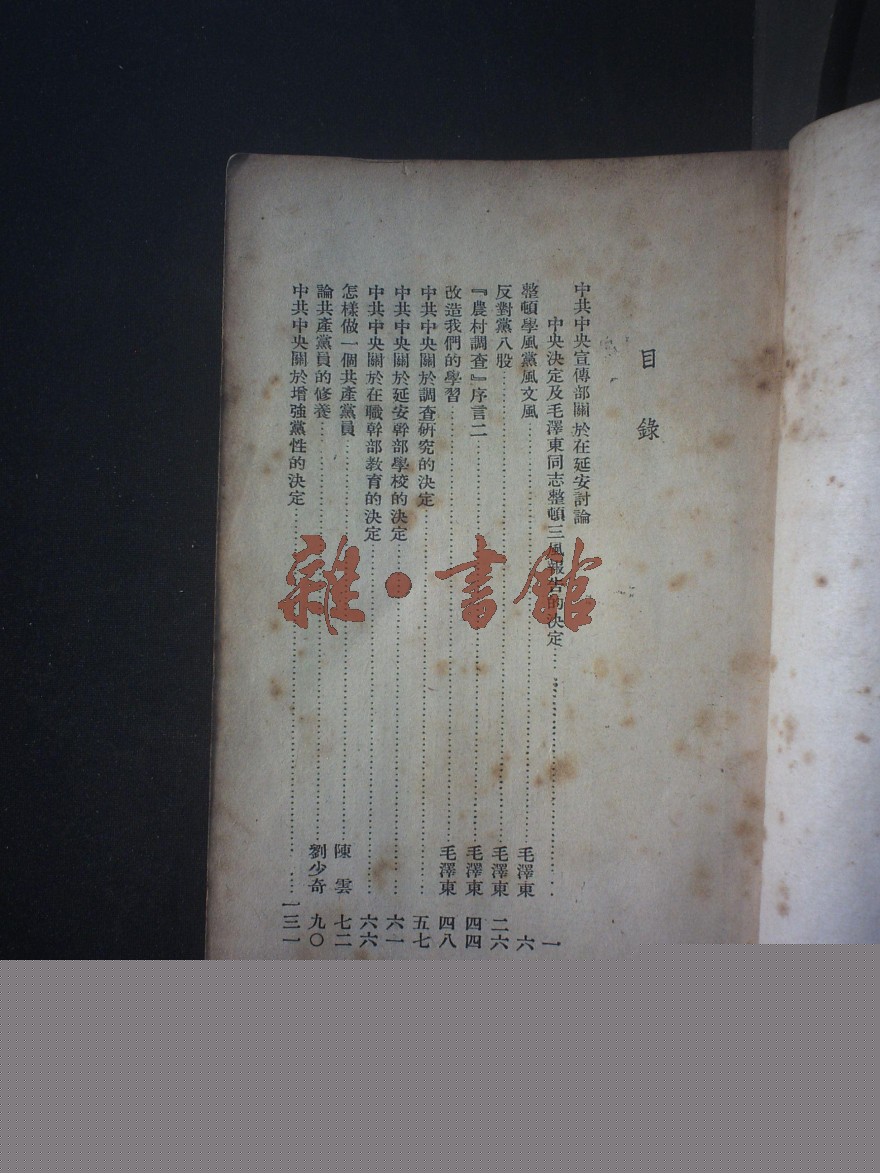 目錄
中共中央宣傳部關於在延安討論
中央決定及毛澤東同志整頓三風報告的決定 一
整頓學風黨風文風 毛澤東 六
反對黨八股 毛澤東 二六
『農村調查』序言二 毛澤東 四四
改造我們的學習 毛澤東 四八
中共中央關於調查研究的決定 五七
中共中央關於延安幹部學校的決定 六一
中共中央關於在職幹部教育的決定 六六
怎樣做一個共產黨員 陳雲 七二
論共產黨員的修養 劉少奇 九〇
中共中央關於增強黨性的決定 一三一
雜·書館